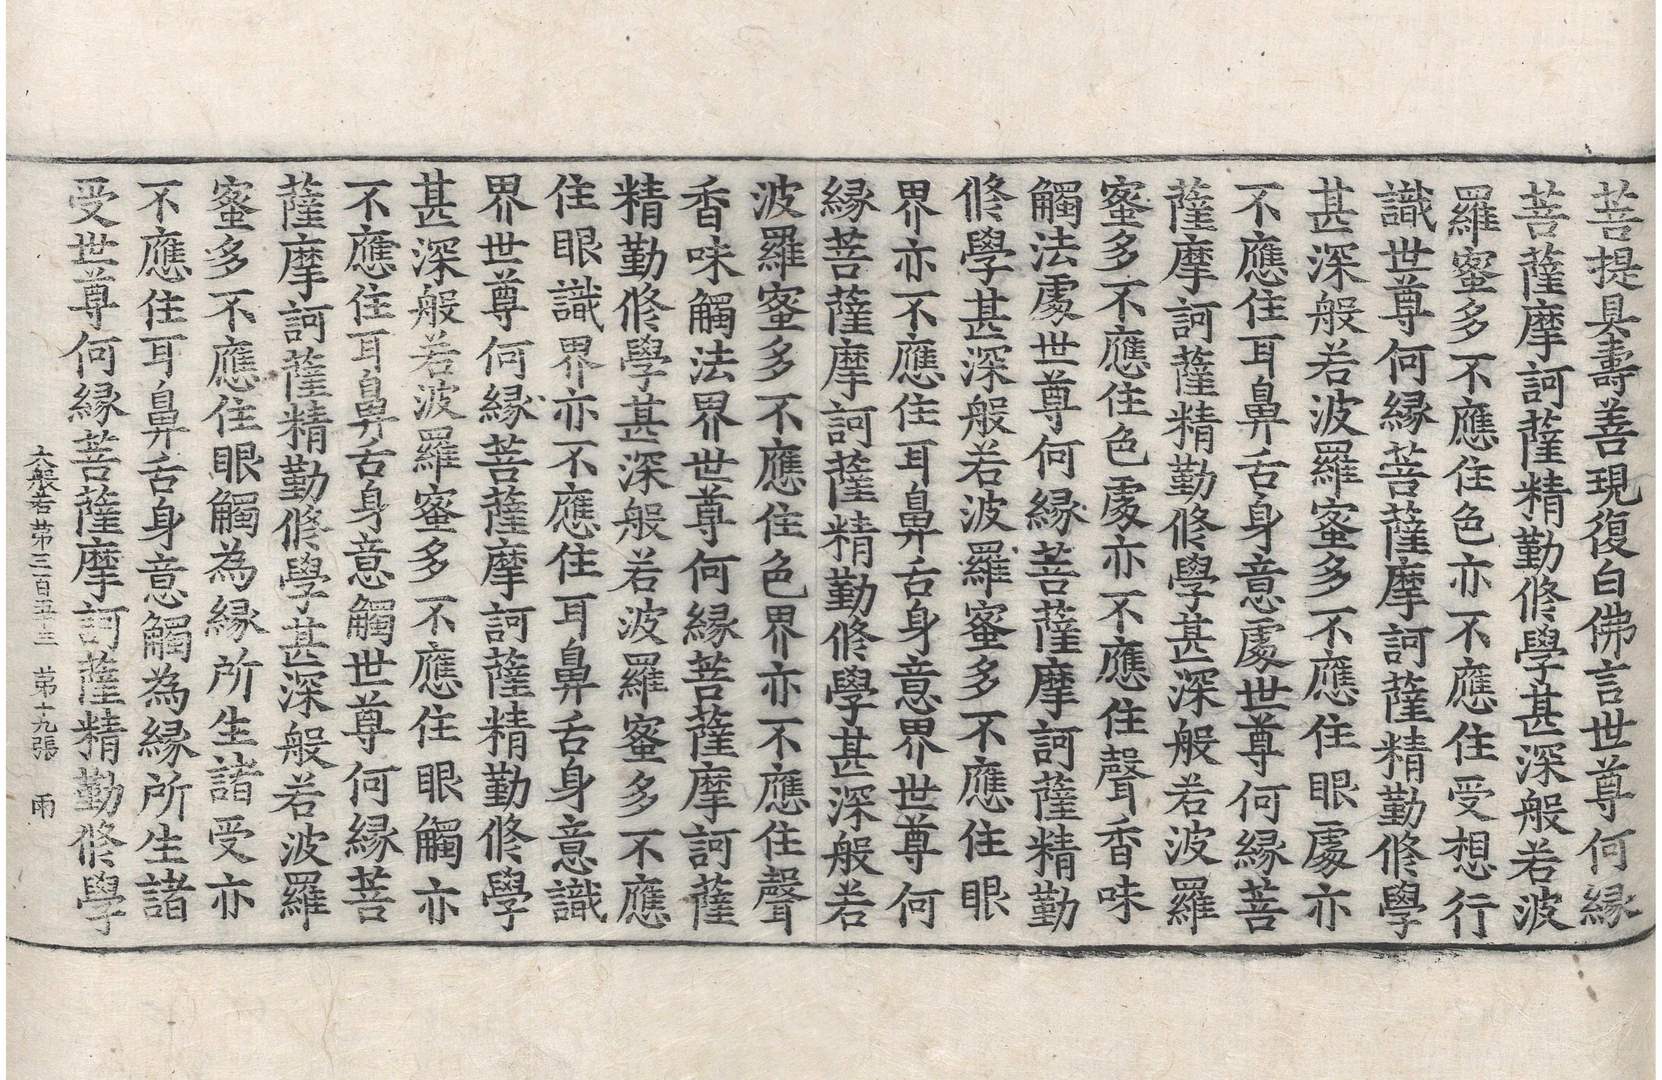 菩提具壽善現復白佛言世尊何縁
菩薩摩訶薩精勤修學甚深般若波
羅蜜多不應住色亦不應住受想行
識世尊何縁菩薩摩訶薩精勤修學
甚深般若波羅蜜多不應住眼處亦
不應住耳鼻舌身意處世尊何縁菩
薩摩訶薩精勤修學甚深般若波羅
蜜多不應住色處亦不應住聲香味
觸法處世尊何縁菩薩摩訶薩精勤
修學甚深般若波羅蜜多不應住眼
界亦不應住耳鼻舌身意界世尊何
縁菩薩摩訶薩精勤修學甚深般若
波羅蜜多不應住色界亦不應住聲
香味觸法界世尊何縁菩薩摩訶薩
精勤修學甚深般若波羅蜜多不應
住眼識界亦不應住耳鼻舌身意識
界世尊何縁菩薩摩訶薩精勤修學
甚深般若波羅蜜多不應住眼觸亦
不應住耳鼻舌身意觸世尊何縁菩
薩摩訶薩精勤修學甚深般若波羅
蜜多不應住眼觸為縁所生諸受亦
不應住耳鼻舌身意觸為縁所生諸
受世尊何縁菩薩摩訶薩精勤修學
大般若第三百五十三 第十九張 雨